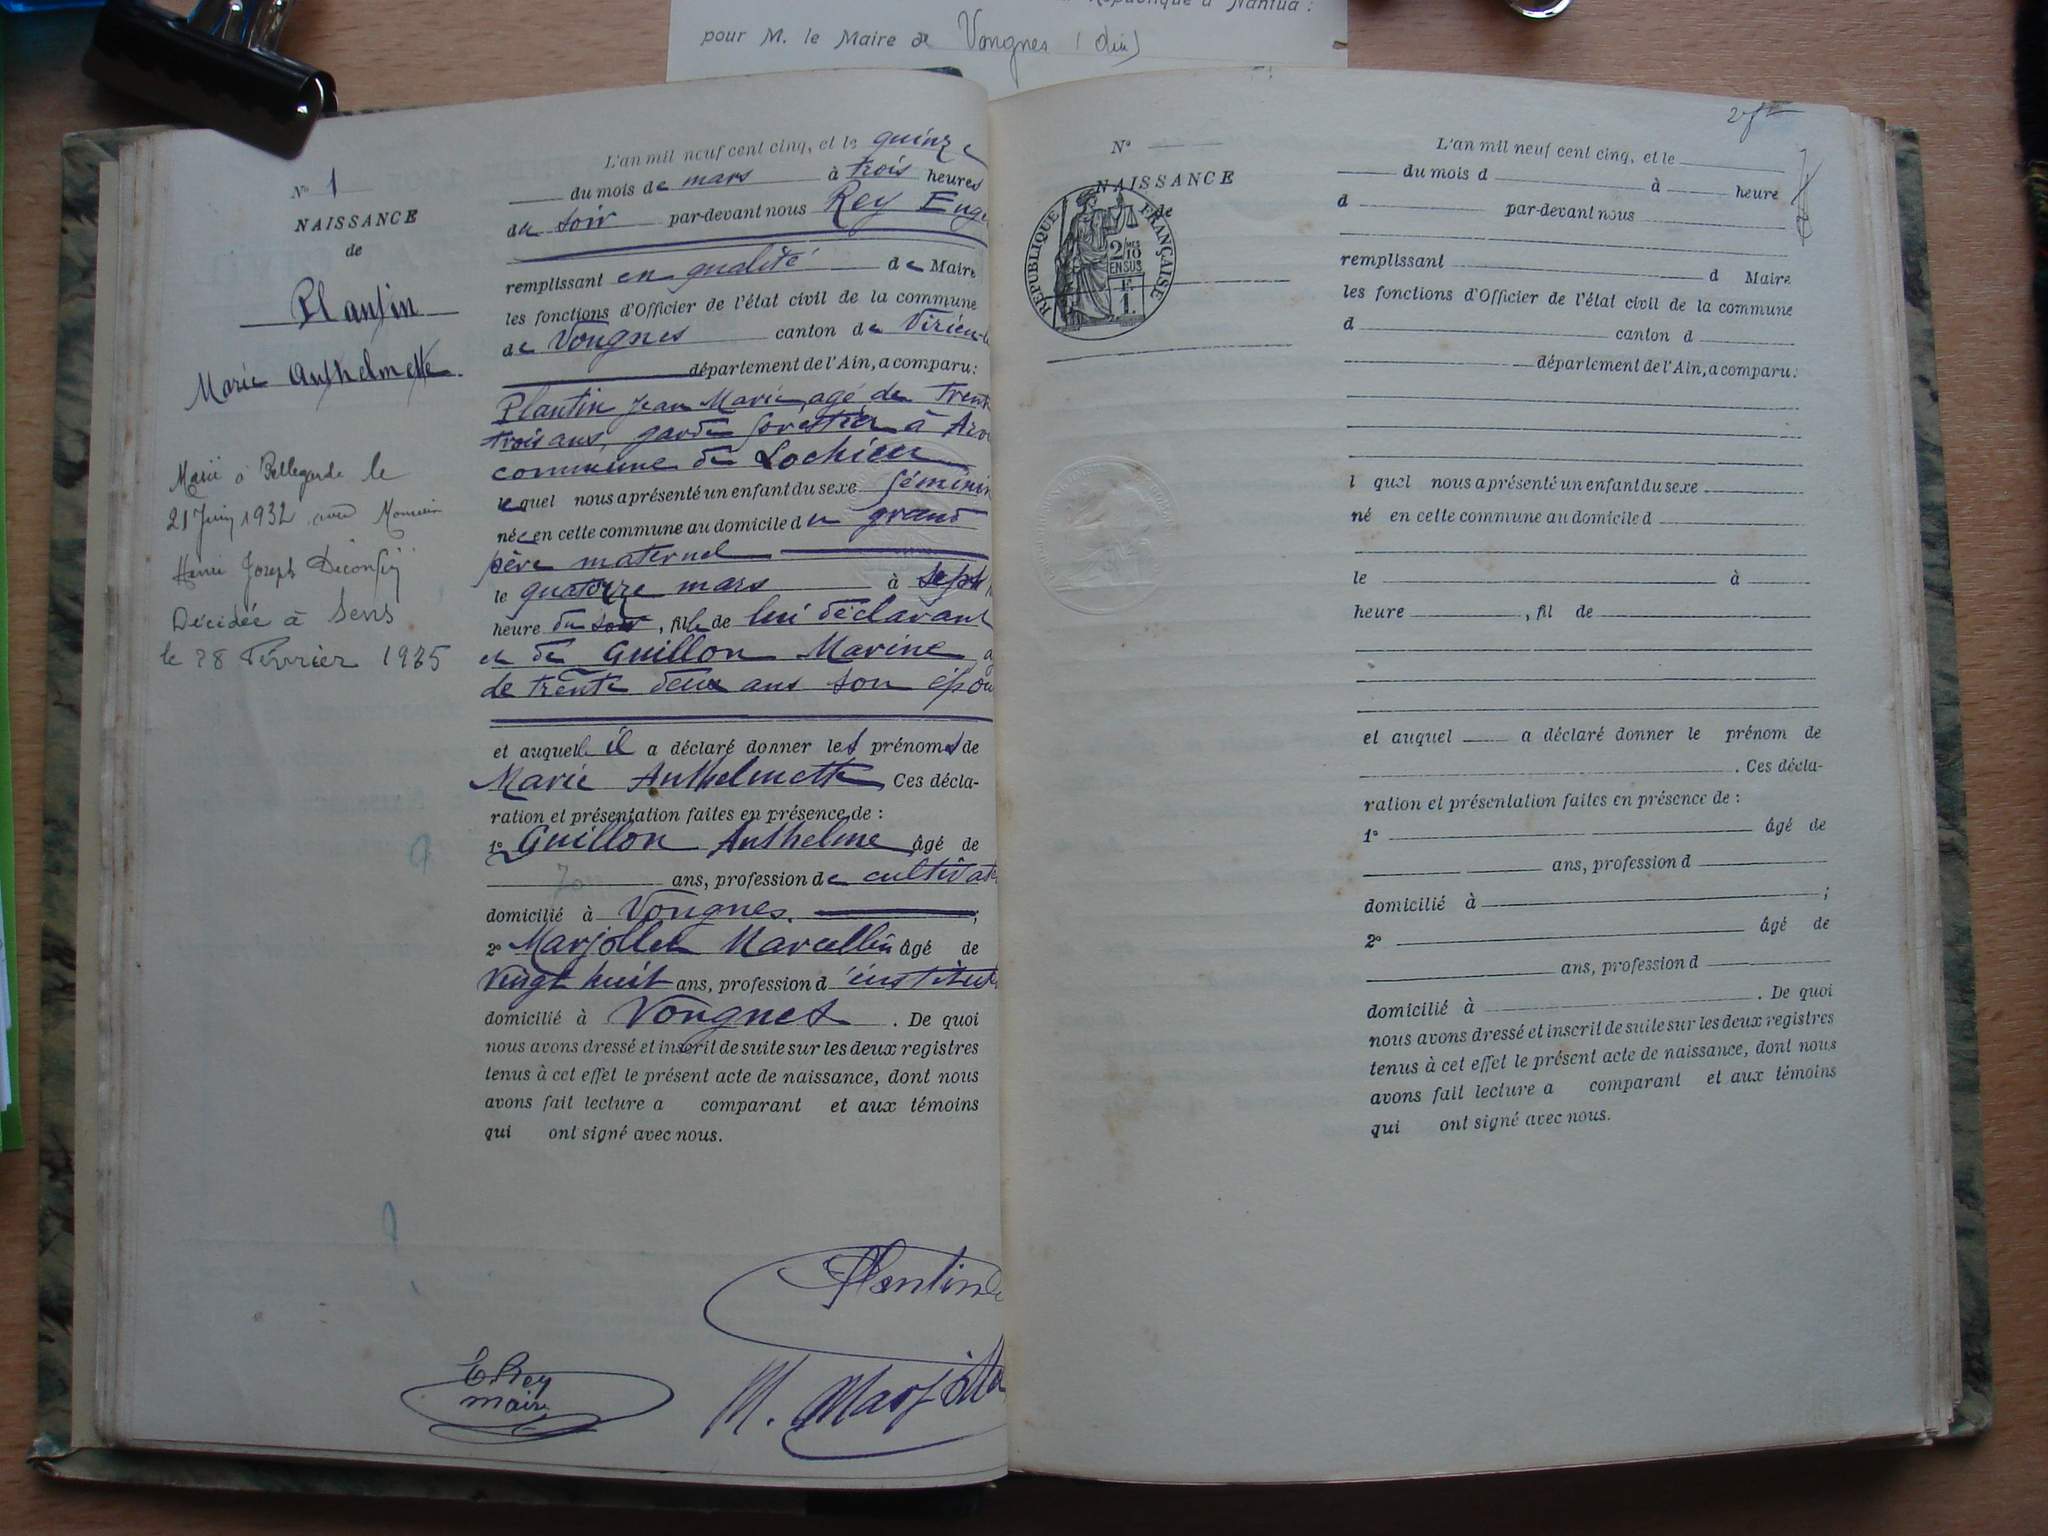 République à Nantua :
pour M. le Maire de Vongnes (Ain)
N° 1
NAISSANCE
de
Plantin
Marie Anthelmette.
Marié à Bellegarde le
21 Juin 1932 avec Monsieur
Henri Joseph
Décidée à Sens
le 28 Février 1975
L'an mil neuf cent cinq, et le quinze
du mois de mars à trois heures
du soir par-devant nous Rey Eug
remplissant en qualité de Maire
les fonctions d'Officier de l'état civil de la commune
de Vongnes canton de Virieu-l
département de l'Ain, a comparu :
Plantin Jean Marie, agé de trent
trois ans, garde forestier à Arv
commune de Lochieu
lequel nous a présenté un enfant du sexe féminin
née en cette commune au domicile du grand
père maternel
le quatorze mars à sept
heure du soir, fille de lui déclarant
et de Guillon Marine ag
de trente deux ans son épou
et auquel il a déclaré donner les prénoms de
Marie Anthelmette Ces décla-
ration et présentation faites en présence de :
1° Guillon Anthelme âgé de
70 ans, profession de cultivate
domicilié à Vongnes. ;
2° Marjollet Marcellin âgé de
vingt huit ans, profession d'institut
domicilié à Vongnes . De quoi
nous avons dressé et inscrit de suite sur les deux registres
tenus à cet effet le présent acte de naissance, dont nous
avons fait lecture a comparant et aux témoins
qui ont signé avec nous.
Plantin
E. Rey
maire
M. Marjolle
N°
NAISSANCE
de
RÉPUBLIQUE FRANÇAISE
2/10 MES
EN SUS
F.
1.
L'an mil neuf cent cinq, et le
du mois d à heure
d par-devant nous
remplissant d Maire
les fonctions d'Officier de l'état civil de la commune
d canton d
département de l'Ain, a comparu :
l quel nous a présenté un enfant du sexe
né en cette commune au domicile d
le à
heure , fil de
et auquel a déclaré donner le prénom de
. Ces décla-
ration et présentation faites en présence de :
1° âgé de
ans, profession d
domicilié à ;
2° âgé de
ans, profession d
domicilié à . De quoi
nous avons dressé et inscrit de suite sur les deux registres
tenus à cet effet le présent acte de naissance, dont nous
avons fait lecture a comparant et aux témoins
qui ont signé avec nous.